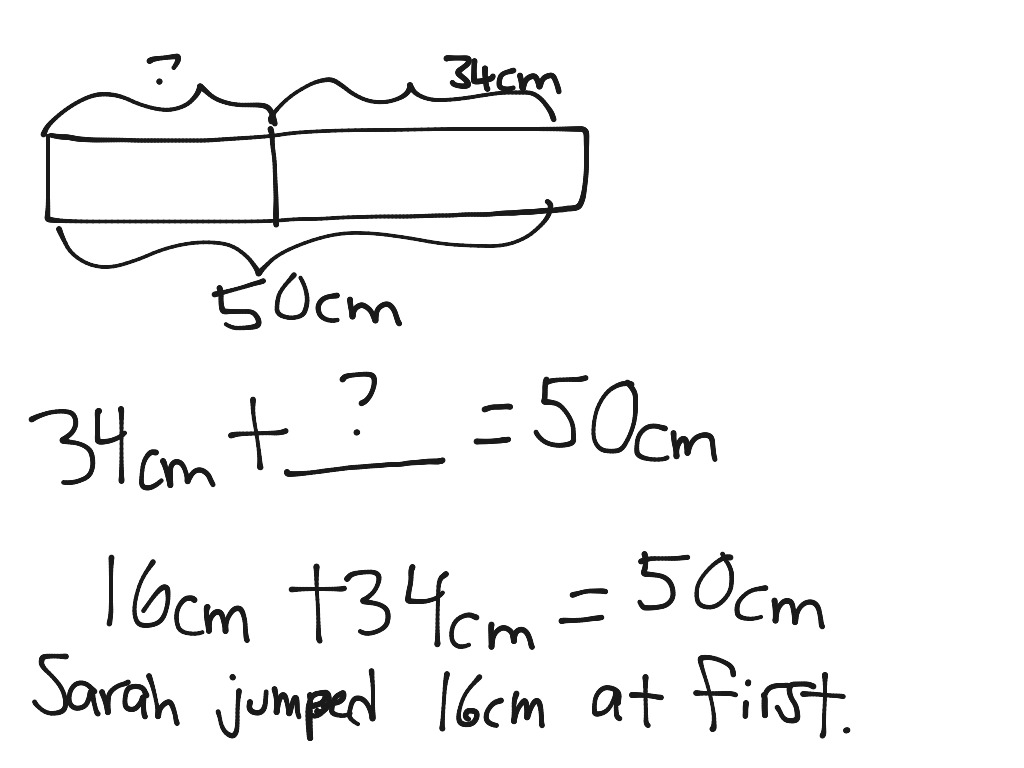 ? 34cm
50cm
34cm + ? = 50cm
16cm + 34cm = 50cm
Sarah jumped 16cm at first.